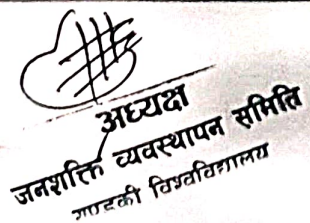 अध्यक्ष
जनशक्ति व्यवस्थापन समिति
गण्डकी विश्वविद्यालय